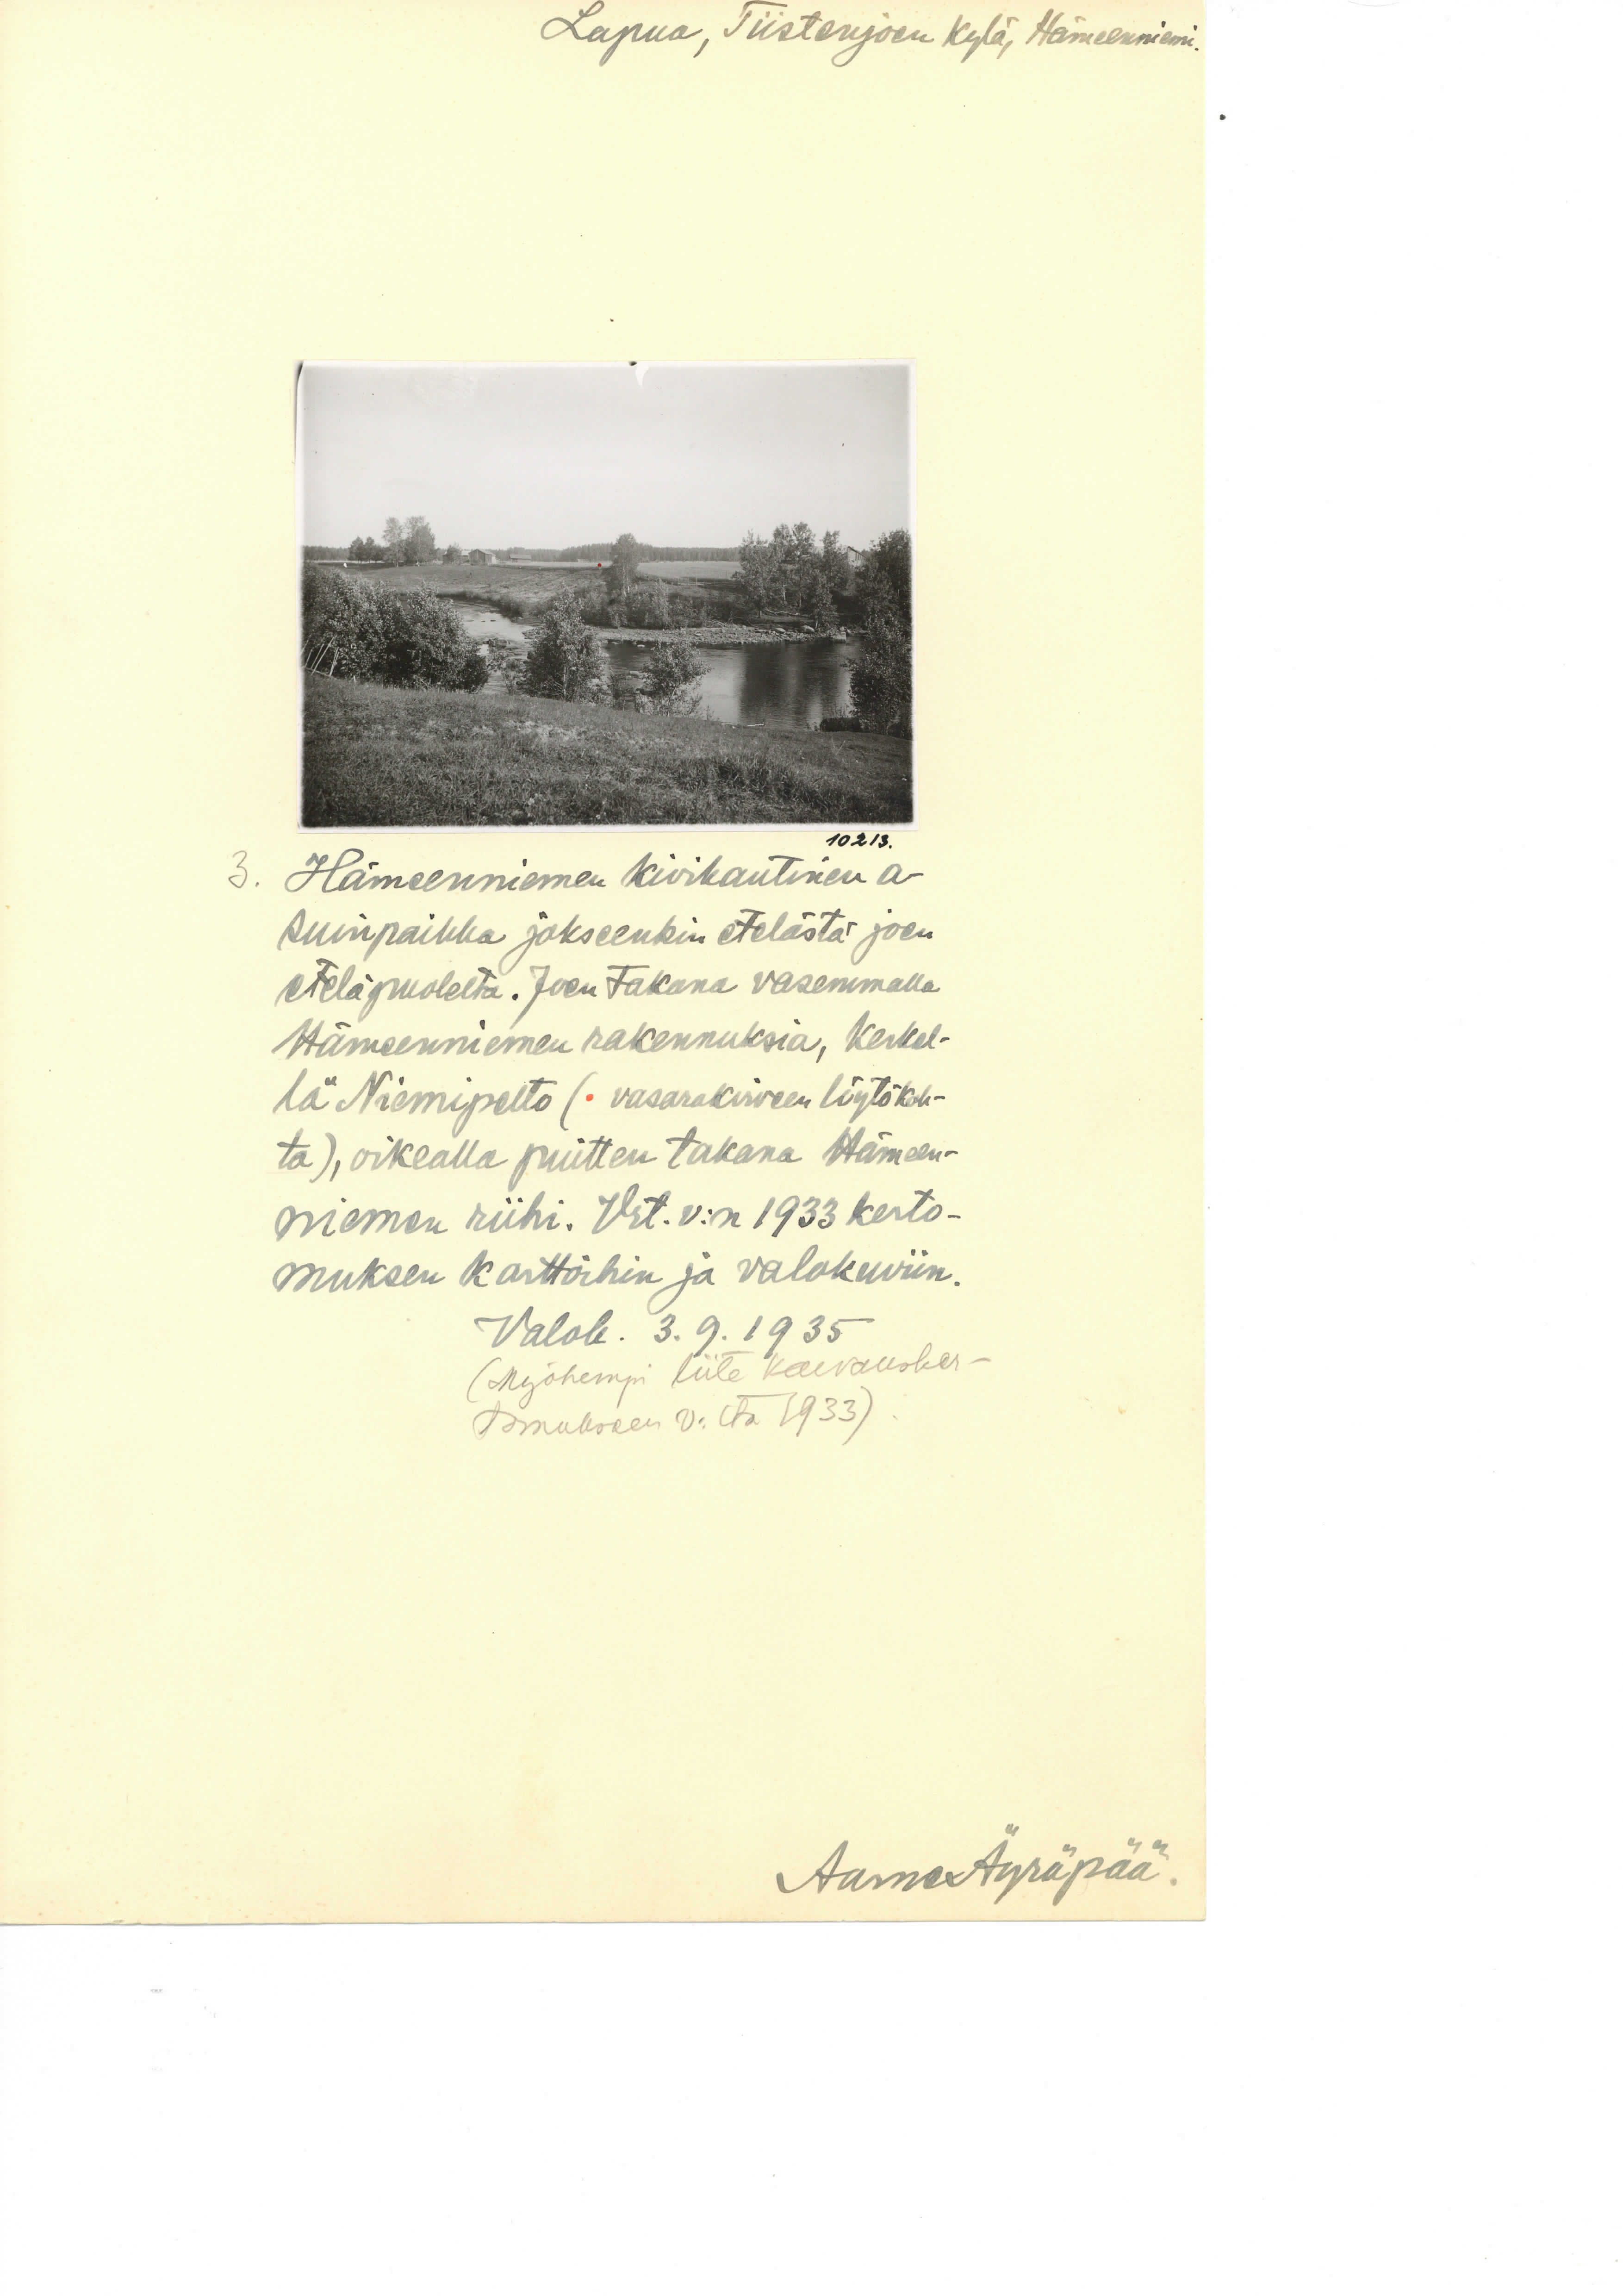 Lapua, Tiistenjoen kylä, Hämeenniemi.
10213.
3. Hämeenniemen kivikautinen a-
suinpaikka jokseenkin etelästä joen
eteläpuolelta. Joen takana vasemmalla
Hämeenniemen rakennuksia, keskel-
lä Niemipelto (• vasarakirveen löytökoh-
ta), oikealla puitten takana Hämeen-
niemen riihi. Vrt. v:n 1933 kerto-
muksen karttoihin ja valokuviin.
Valok. 3.9.1935
(Myöhempi liite kaivausker-
tomukseen v:lta 1933).
Aarne Äyräpää.